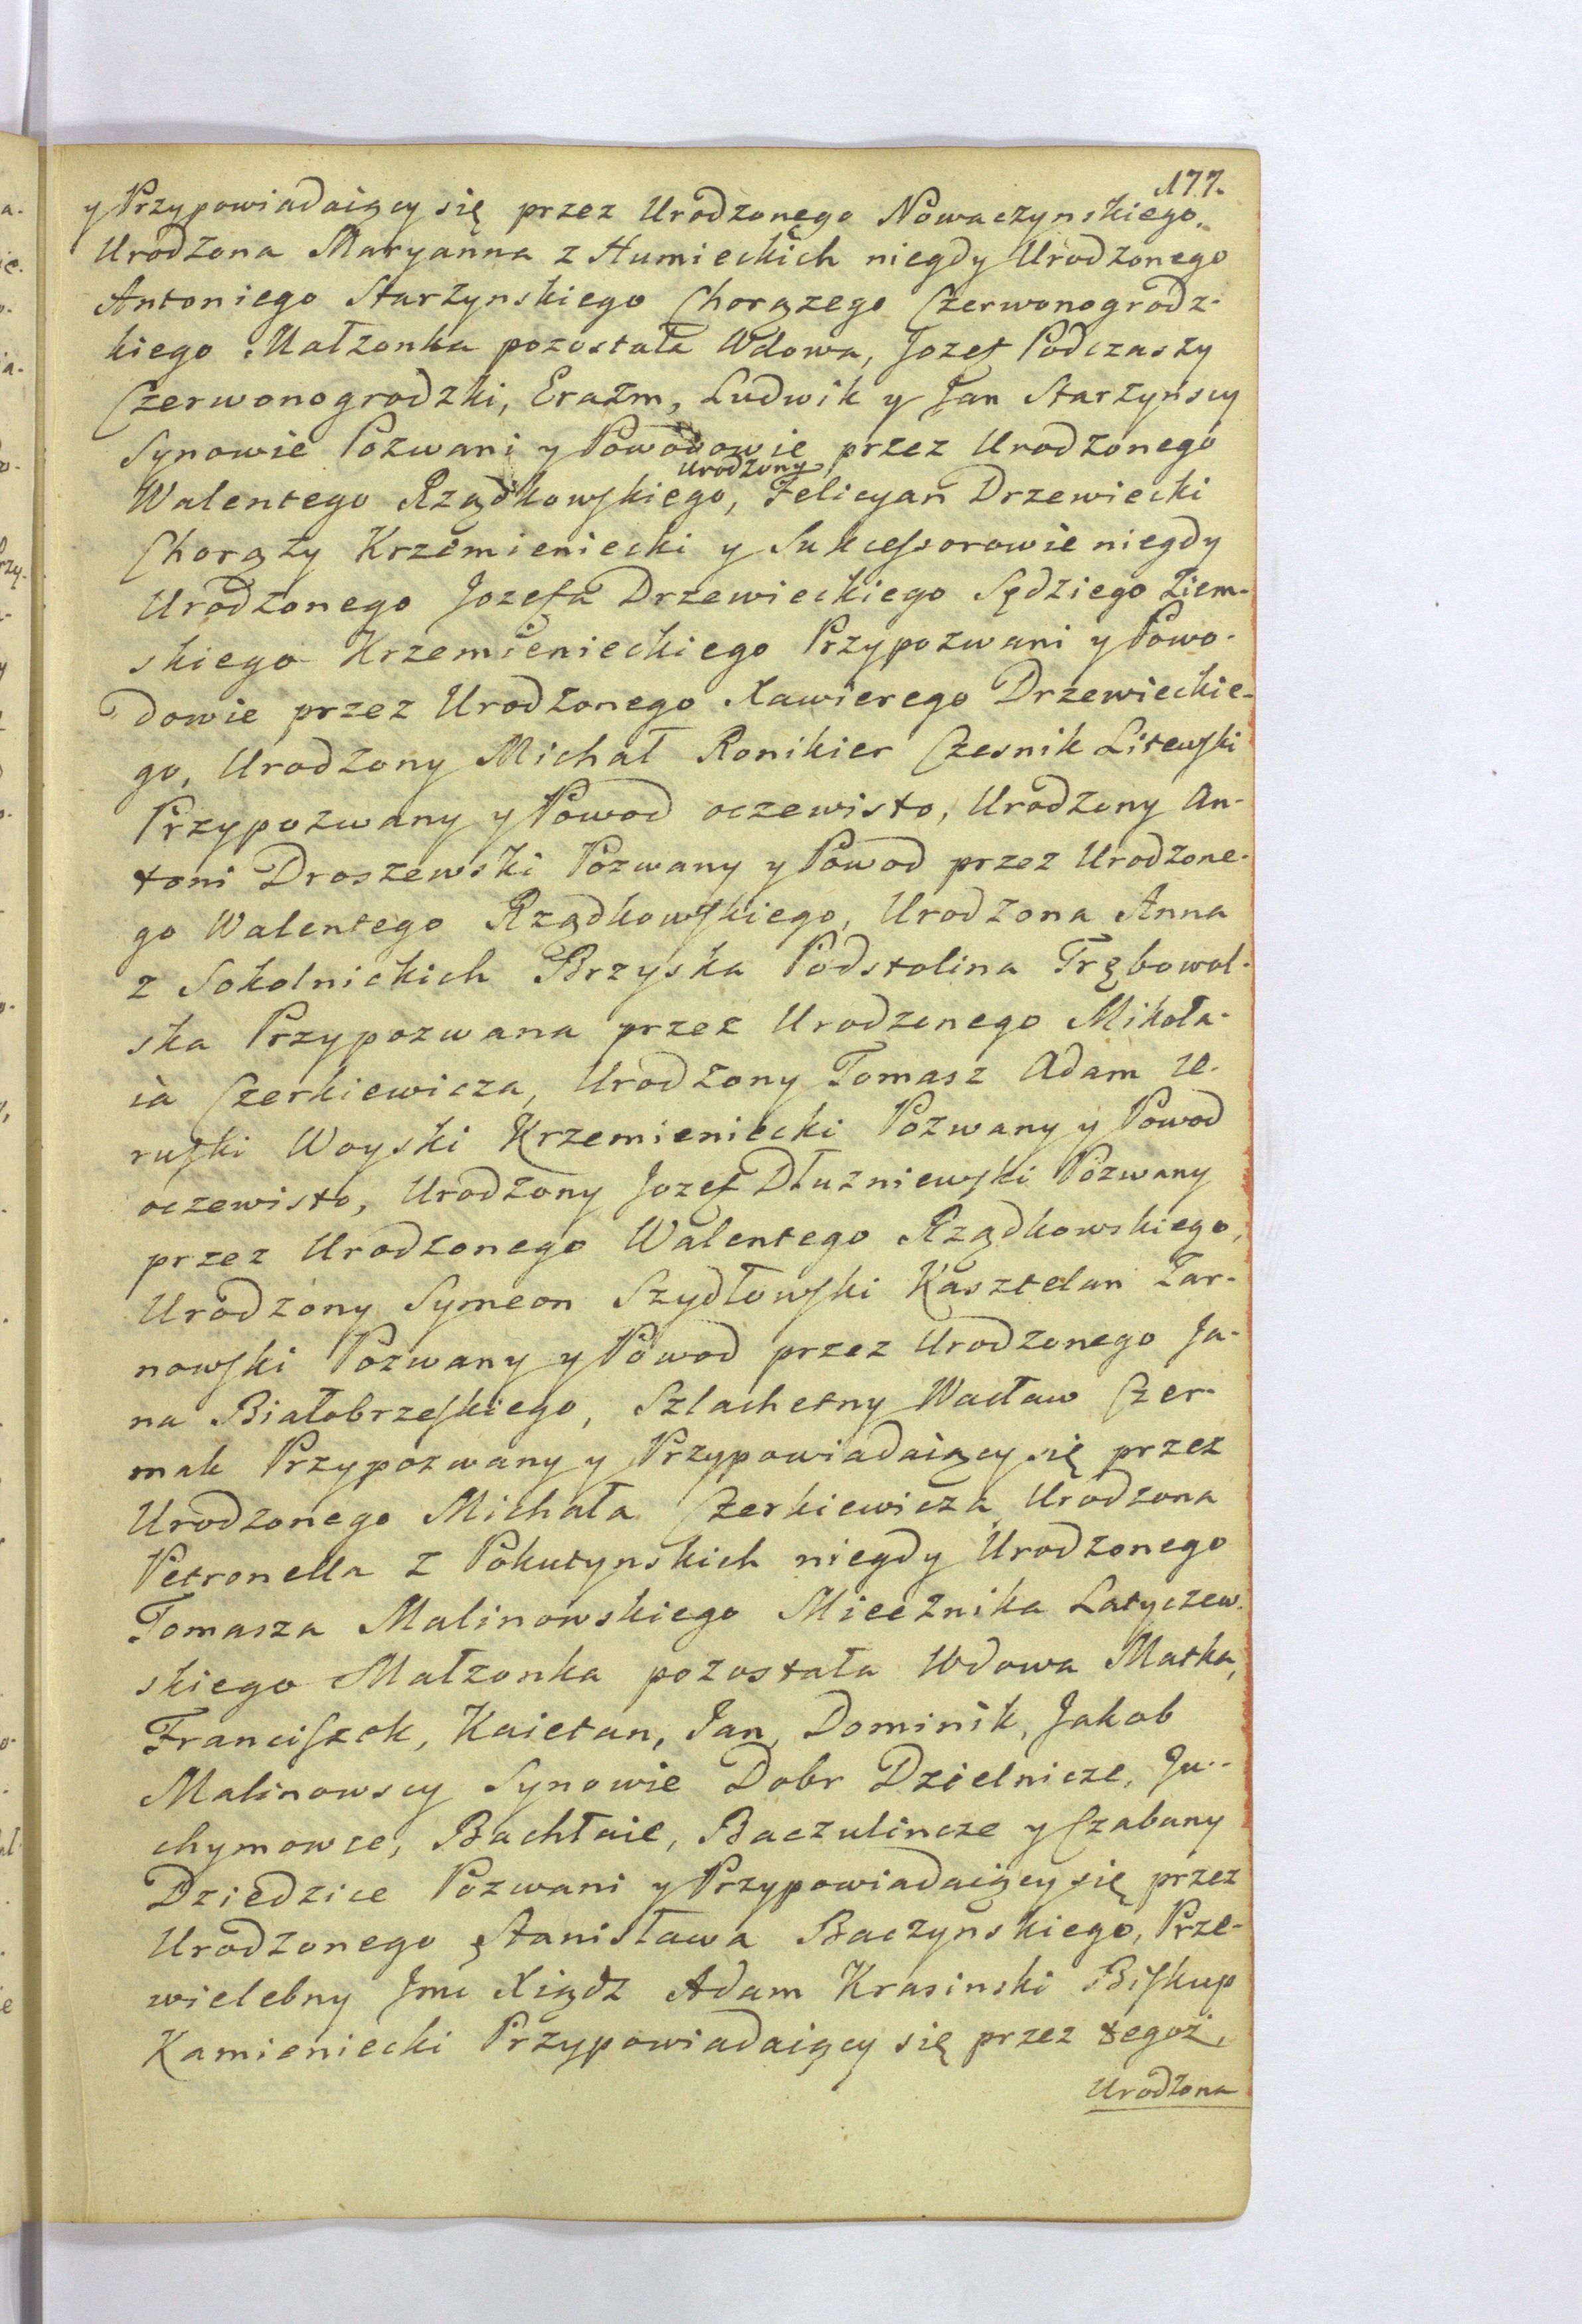 177.
y Przypowiadaiący się przez Urodzonego Nowaczynskiego,
Urodzona Maryanna z Humieckich niegdy Urodzonego
Antoniego Starzynskiego Chorązego Czerwonogrodz-
kiego Małzonka pozostała Wdowa, Jozef Podczaszy
Czerwonogrodzki, Erazm, Ludwik y Jan Starzynscy
Synowie Pozwani y Powodowie przez Urodzonego
Urodzony
Walentego Rządkowskiego, Felicyan Drzewiecki
Chorązy Krzemieniecki y Sukcessorowie niegdy
Urodzonego Jozefa Drzewieckiego Sędziego Ziem-
skiego Krzemienieckiego Przypozwani y Powo-
dowie przez Urodzonego Xawierego Drzewieckie-
go, Urodzony Michał Ronikier Czesnik Litewski
Przypozwany y Powod oczewisto, Urodzony An-
toni Droszewski Pozwany y Powod przez Urodzone-
go Walentego Rządkowskiego, Urodzona Anna
z Sokolnickich Brzyska Podstolina Trębowol-
ska Przypozwana przez Urodzonego Mikoła-
ia Czerkiewicza, Urodzony Tomasz Adam Ze-
ruski Woyski Krzemieniecki Pozwany y Powod
oczewisto, Urodzony Jozef Dłuzniewski Pozwany
przez Urodzonego Walentego Rządkowskiego,
Urodzony Symeon Szydłowski Kasztelan Zar-
nowski Pozwany y Powod przez Urodzonego Ja-
na Białobrzeskiego, Szlachetny Wacław Czer-
mak Przypozwany y Przypowiadaiący się przez
Urodzonego Michała Czerkiewicza, Urodzona
Petronella z Pokutynskich niegdy Urodzonego
Tomasza Malinowskiego Miecznika Latyczew-
skiego Małzonka pozostała Wdowa Matka,
Franciszek, Kaietan, Jan, Dominik, Jakob
Malinowscy Synowie Dobr Dzielnicze, Ju-
chymowce, Bachłaie, Baczulincze y Szabany
Dziedzice Pozwani y Przypowiadaiący się przez
Urodzonego Stanisława Baczynskiego, Prze-
wielebny Jmc Xiądz Adam Krasinski Biskup
Kamieniecki Przypowiadaiący się przez tegoż,
Urodzona